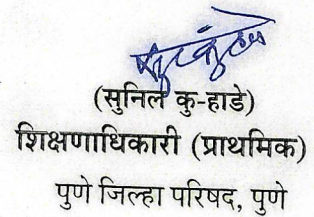 (सुनिल कु-हाडे)
शिक्षणाधिकारी (प्राथमिक)
पुणे जिल्हा परिषद, पुणे